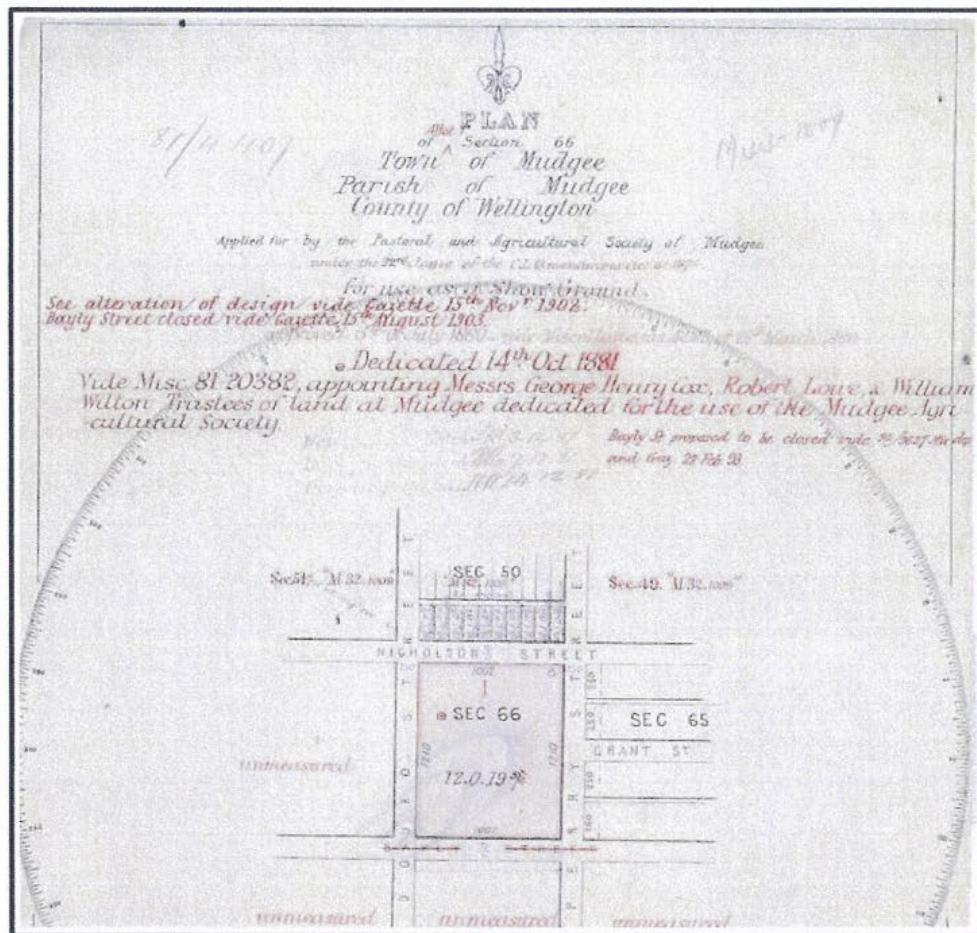 PLAN
81/4 1007
Allot
of Section 66
Town of Mudgee
Parish of Mudgee
County of Wellington
Applied for by the Pastoral and Agricultural Society of Mudgee
under the 22nd clause of the
for use as a Show Ground.
See alteration of design vide Gazette 15th Novr 1902.
Bayly Street closed vide Gazette, 15th August 1903.
July 1880 March 1880
Dedicated 14th Oct 1881
Vide Misc. 81 20382, appointing Messrs George Henry Cox, Robert Lowe, & William
Wilton Trustees of land at Mudgee dedicated for the use of the Mudgee Agri
-cultural Society.
Bayly St proposed to be closed vide
and Gaz 28 Feb 93
Sec 51. "M 32.1009"
SEC 50
Sec. 49. "M 32.1009"
NICHOLSON STREET
1002
SEC 66
SEC 65
1210
1210
GRANT ST
12.0.19
unmeasured
1002
DOURO STREET
PERRY STREET
250
250
unmeasured
unmeasured
unmeasured